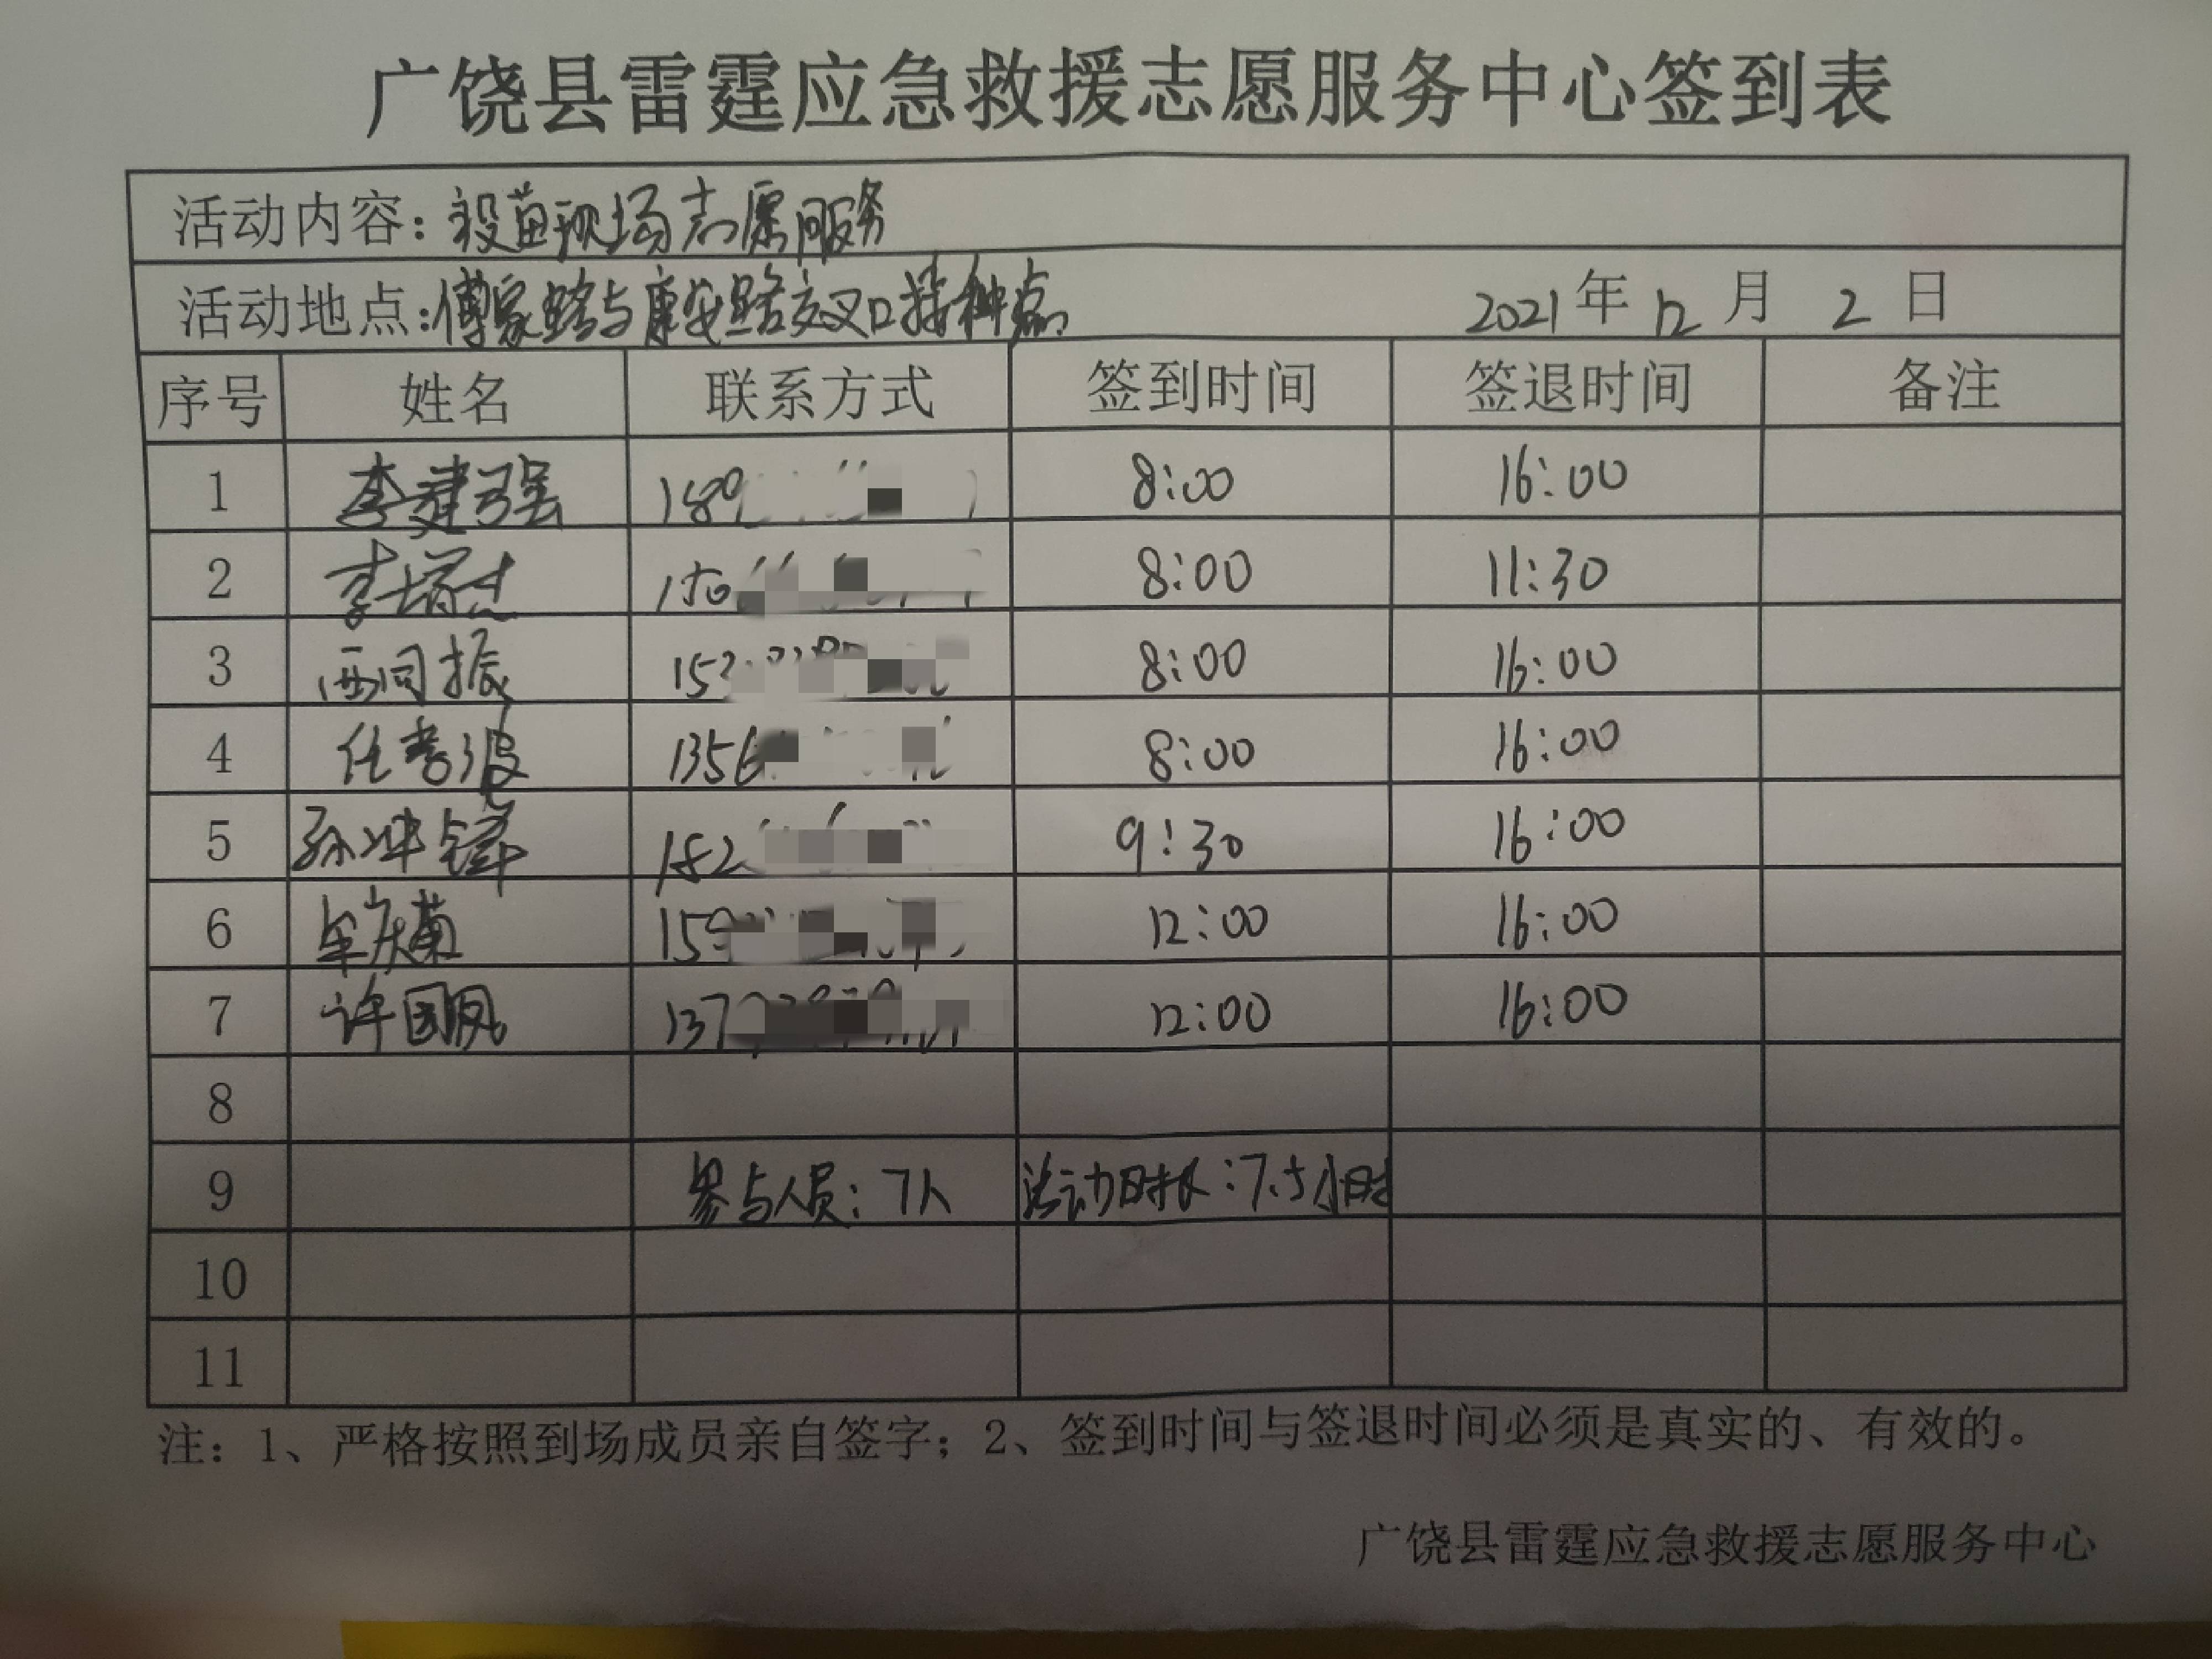 广饶县雷霆应急救援志愿服务中心签到表
活动内容：疫苗现场志愿服务
活动地点：傅家路与康安路交叉口接种点 2021年12月2日
序号 姓名 联系方式 签到时间 签退时间 备注
1 李建强 189 8:00 16:00
2 李培杰 150 8:00 11:30
3 西同振 152 8:00 16:00
4 任孝波 1356 8:00 16:00
5 孙坤锋 182 9:30 16:00
6 牟庆菊 159 12:00 16:00
7 许国凤 137 12:00 16:00
8
9 参与人员：7人 活动时长：7.5小时
10
11
注：1、严格按照到场成员亲自签字；2、签到时间与签退时间必须是真实的、有效的。
广饶县雷霆应急救援志愿服务中心